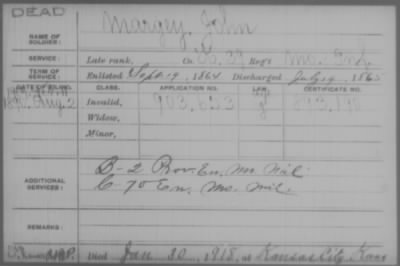 DEAD
NAME OF SOLDIER: Margey, John
SERVICE: Late rank, Co. 39 Reg't Mo. Inf.
TERM OF SERVICE: Enlisted Sept. 19, 1864 Discharged July 19, 1865
DATE OF FILING. CLASS. APPLICATION NO. LAW. CERTIFICATE NO.
Aug. 2 Invalid, 903.623
Widow,
Minor,
ADDITIONAL SERVICES: B-2 Prov. En. Mo. Mil.
C 70 En. Mo. Mil.
REMARKS:
Died Jan 30, 1918, at Kansas City, Kans